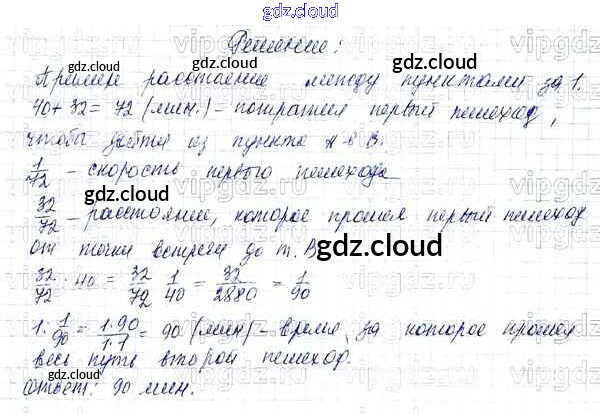 gdz.cloud
Решение:
Примем расстояние между пунктами за 1.
40+32=72 (мин.) - потратил первый пешеход,
чтобы дойти из пункта А в В.
1/72 - скорость первого пешехода
32/72 - расстояние, которое прошел первый пешеход
от точки встречи до т. В
32/72 : 40 = 32/72 · 1/40 = 32/2880 = 1/90
1 : 1/90 = 1·90/1·1 = 90 (мин) - время, за которое прошел
весь путь второй пешеход.
Ответ: 90 мин.